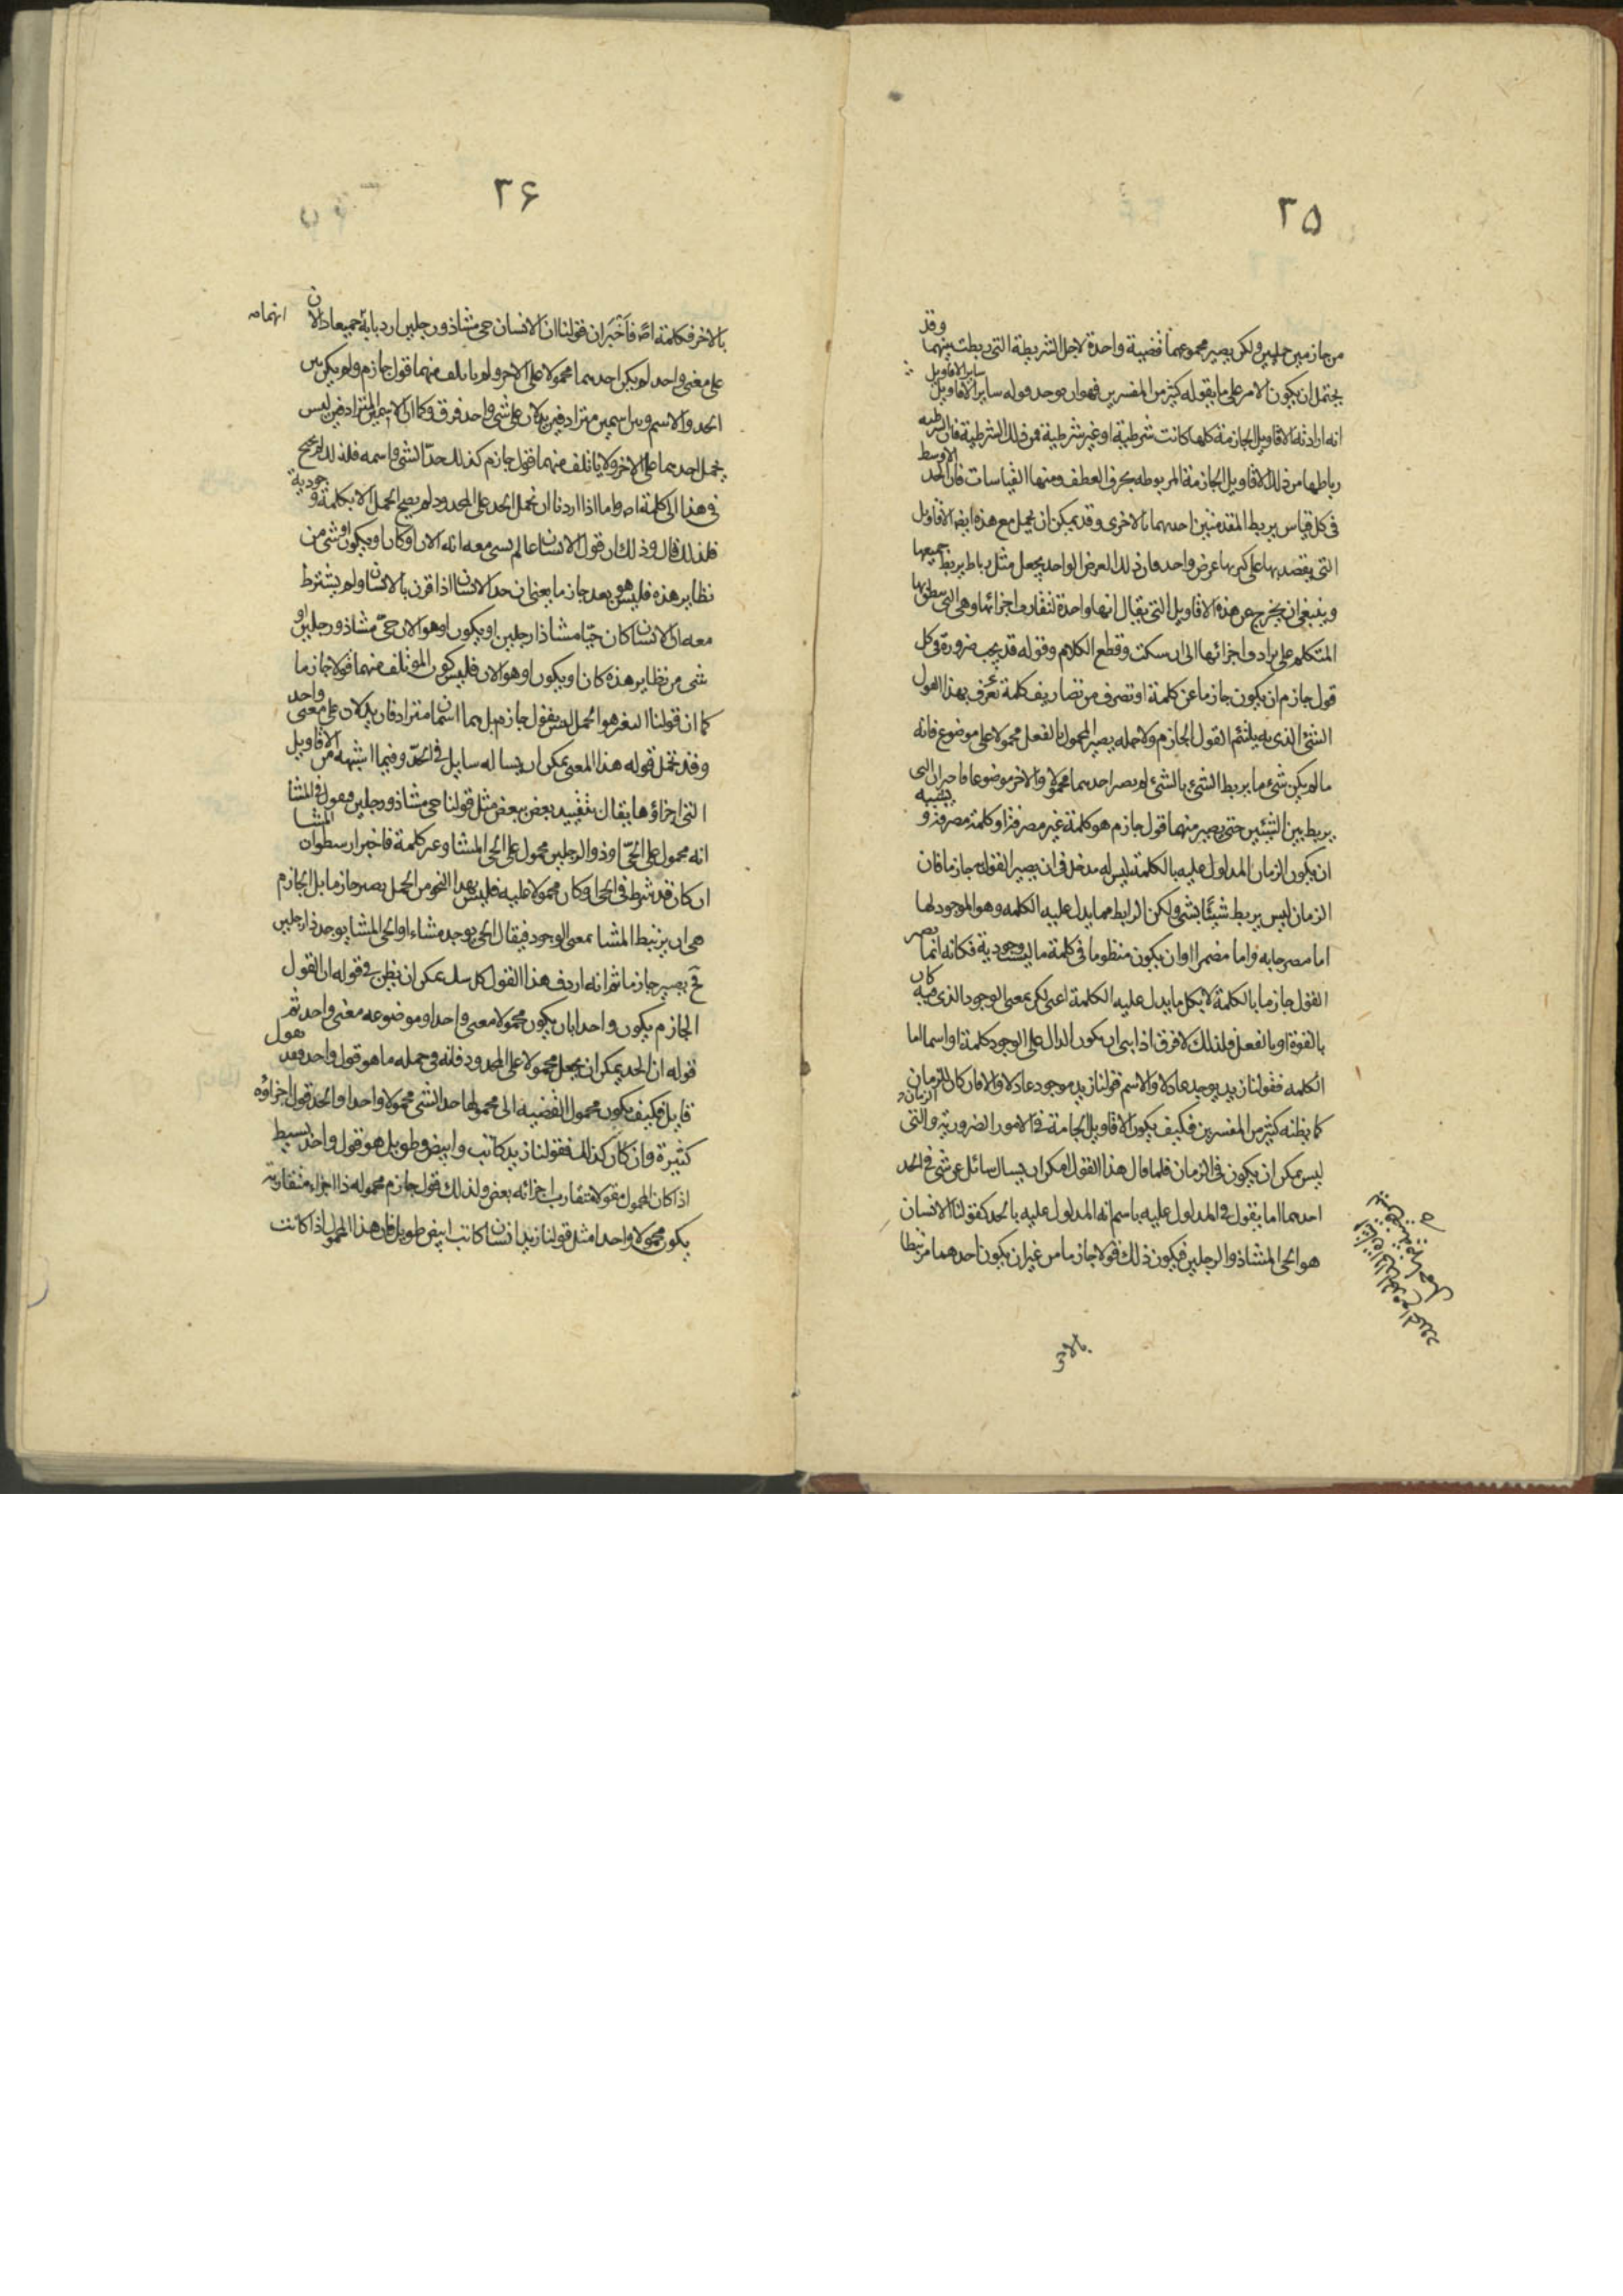 ٢٥
من جازمين حمليين ولكن يصير مجموعهما قضية واحدة لاجل الشريطة التى ربطت بينهما وقد
يحتمل ان يكون الامر على ما يقوله كثير من المفسرين فهو ان يوجد قوله ساير الاقاويل
انه اراد به الاقاويل الجازمة كلها كانت شرطية او غير شرطية فمن ذلك الشرطية فان الشرطية
رباطها من ذلك الاقاويل الجازمة المربوطه بحرف العطف ومنها القياسات فان الحد الاوسط
فى كل قياس يربط المقدمتين احديهما بالاخرى وقد يمكن ان يحمل مع هذه ايضا الاقاويل
التى يقصد بها على كثرتها غرض واحد فان ذلك الغرض الواحد يجعل مثل رباط يربط جميعها
وينبغى ان يخرج عن هذه الاقاويل التى يقال انها واحدة لتقارب اجزائها وهى التى ينطق بها
المتكلم على ترادف اجزائها الى ان سكت وقطع الكلام وقوله قد يجب ضرورة فى كل
قول جازم ان يكون جازما عن كلمة او تصرف من تصاريف كلمة تعرف بهذا القول
الشئ الذى به يلتئم القول الجازم ولاجله يصير المحمول بالفعل محمولا على موضوع فانه
ما لم يكن شئ ما يربط الشئ بالشئ لم يصر احدهما محمولا والاخر موضوعا فاخبر ان الذى
يربط بين الشيئين حتى يصير منهما قول جازم هو كلمة غير مصرفة او كلمة مصرفة و يشبه
ان يكون الزمان المدلول عليه بالكلمة ليس له مدخل فى ان يصير القول به جازما فان
الزمان ليس يربط شيئا بشئ ولكن الرابط مما يدل عليه الكلمه وهو الموجود لها
اما مصرحا به واما مضمرا او ان يكون منظوما فى كلمة ما ليست وجودية فكانه انما يصير
القول جازما بالكلمة لا بكل ما يدل عليه الكلمة اعنى لكن بمعنى الوجود الذى فيه كان
بالقوة او بالفعل فلذلك لا فرق اذا بين ان يكون الدال على الوجود كلمة او اسما اما
الكلمه فقولنا زيد يوجد عادلا والاسم قولنا زيد موجود عادلا والا فان كان للزمان
كما يظنه كثير من المفسرين فكيف يكون الاقاويل الجازمة فى الامور الضرورية والتى
ليس يمكن ان يكون فى الزمان فلما قال هذا القول امكن ان يسال سائل عن شئ فى الحد
احدهما اما يقول فى المدلول عليه باسم انه المدلول عليه بالحد كقولنا الانسان
هو الحى المشاء ذو الرجلين فيكون ذلك قولا جازما من غير ان يكون احدهما مرتبطا
بالا
٢۶
بالاخر فكلمة اص فاخبر ان قولنا ان الانسان حى مشاء ذو رجلين
على معنى واحد لم يكن احدهما محمولا على الاخر ولم ياتلف منهما قول جازم ولم يكن بين
الحد والاسم وبين اسمين مترادفين يدلان على شئ واحد فرق وكما ان الاسمين المترادفين ليس
يحمل احدهما على الاخر ولا ياتلف منهما قول جازم كذلك حد الشئ واسمه فلذلك لم يحتج
فى هذا الى كلمة اص واما اذا اردنا ان نحمل الحد على المحدود لم يصح الحمل الا بكلمة وجودية
فلذلك قال وذلك ان قول الانسان ما لم يسمى معه انه الان او كان او يكون او شئ من
نظاير هذه فليس هو بعد جازما يعنى ان حد الانسان اذا قرن بالانسان ولم يشترط
معه ان الانسان كان حيا مشاء ذا رجلين او يكون او هو الان حى مشاء ذو رجلين او
شئ من نظاير هذه كان او يكون او هو الان فليس يكون المؤتلف منهما قولا جازما
كما ان قولنا هو الجمل ليس بقول جازم بل هما اسمان مترادفان يدلان على معنى واحد
وقد تحمل قوله هذا المعنى يمكن ان يساله سايل فى الحد وفيما اشبهه من الاقاويل
التى اجزاؤها يقال بتقييد بعض ببعض مثل قولنا حى مشاء ذو رجلين فيقول فى المشاء
انه محمول على الحى او ذو الرجلين محمول على الحى المشاء وعن كلمة فاخبر ارسطو ان المشاء
ان كان قد شرط فى الحى او كان محمولا عليه فليس بهذا النحو من الحمل يصير جازما بل الجازم
هى ان يرتبط المشاء بمعنى الوجود فيقال الحى يوجد مشاء او الحى المشاء يوجد ذا رجلين
فح يصير جازما ثم انه اردف هذا القول يمكن ان يظن فى قوله ان القول
الجازم يكون واحدا بان يكون محموله معنى واحدا وموضوعه معنى واحد ثم
قوله ان الحد يمكن ان يجعل محمولا على المحدود فانه فى جمله ما هو قول واحد فقد يقول
قايل فكيف يكون محمول القضيه الى محمولها حد الشئ محمولا واحدا والحد قول اجزاؤه
كثيرة وان كان كذلك فقولنا زيد كاتب وابيض وطويل هو قول واحد بسيط
اذا كان المحمول مقولا متقارب اجزائه بعض ولذلك قول جازم محموله ذا اجزاء متقاربة
يكون محمولا واحدا مثل قولنا زيد انسان كاتب ابيض طويل فان هذا المحمول اذا كانت